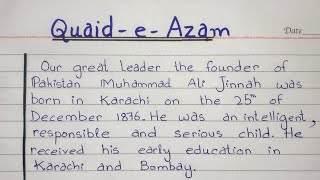 Quaid-e-Azam
Date
Our great leader the founder of
Pakistan Muhammad Ali Jinnah was
born in Karachi on the 25th of
December 1876. He was an intelligent,
responsible and serious child. He
received his early education in
Karachi and Bombay.